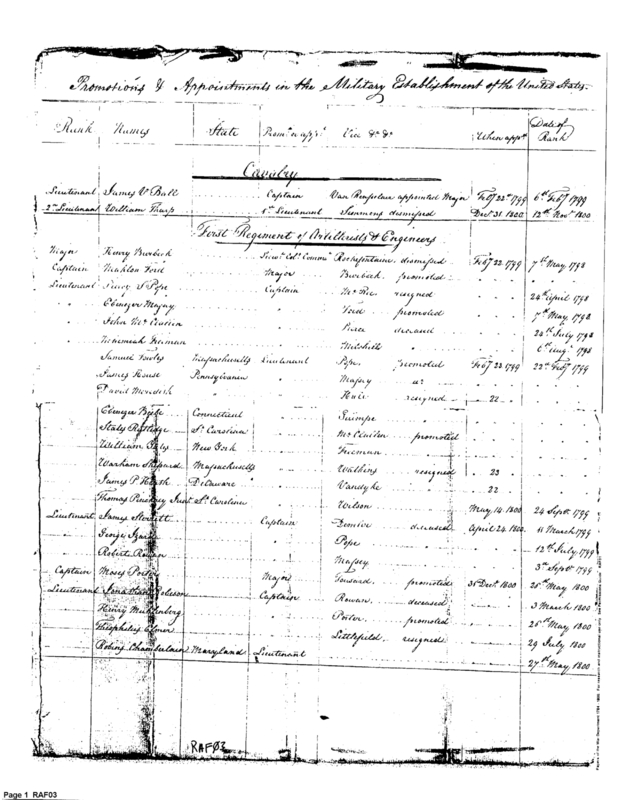 Promotions & Appointments in the Military Establishment of the United States.
Rank Names State Prom. or app. Vice &c &c When app. Date of Rank
Cavalry
Lieutenant James V. Ball Captain Van Renselaer appointed Major Feby 22d 1799 6th Feby 1799
2nd Lieutenant William Tharp 1st Lieutenant Simmons dismissed Decr 31. 1800 12th Novr 1800
First Regiment of Artillerists & Engineers
Major Henry Burbeck Lieut. Colo Comm. Rochefontaine dismissed Feby 22. 1799 7th May 1798
Captain Mahlon Ford Major Burbeck promoted
Lieutenant Percy S Pope Captain resigned 24th April 1798
" Ebenezer Massey " Ford promoted 7th May 1798
" John McClallen " Peirce deceased 24th July 1798
" Nehemiah Freeman " Mitchell 6th Augt 1798
Samuel Fowles Massachusetts Lieutenant Pope promoted Feby 23. 1799 22d Feby 1799
James House Pennsylvania " Massey do
David Meredith " resigned 22
Ebenezer Beebe Connecticut
States Rutledge So Carolina " McClallen promoted
William Yates New York " Freeman
Warham Shepard Massachusetts " Watkins resigned 23
James P. Heath Delaware " Vandyke 22
Thomas Pinckney Junr So Carolina " Wilson May 14. 1800 24 Septr 1799
Lieutenant James Sterrett Captain Demlar deceased April 24. 1800 11 March 1799
" George Izard " Pope 12th July 1799
" Robert Rowan " Massey 3rd Septr 1799
Captain Moses Porter Major Tousard promoted 31 Decr 1800 26th May 1800
Lieutenant Jonathan Robeson Captain Rowan deceased 3 March 1800
" Henry Muhlenberg " Porter promoted 26th May 1800
" Theophilus Elmer " Littlefield resigned 29 July 1800
Robins Chamberlain Maryland Lieutenant 27th May 1800
RAF03
Page 1 RAF03